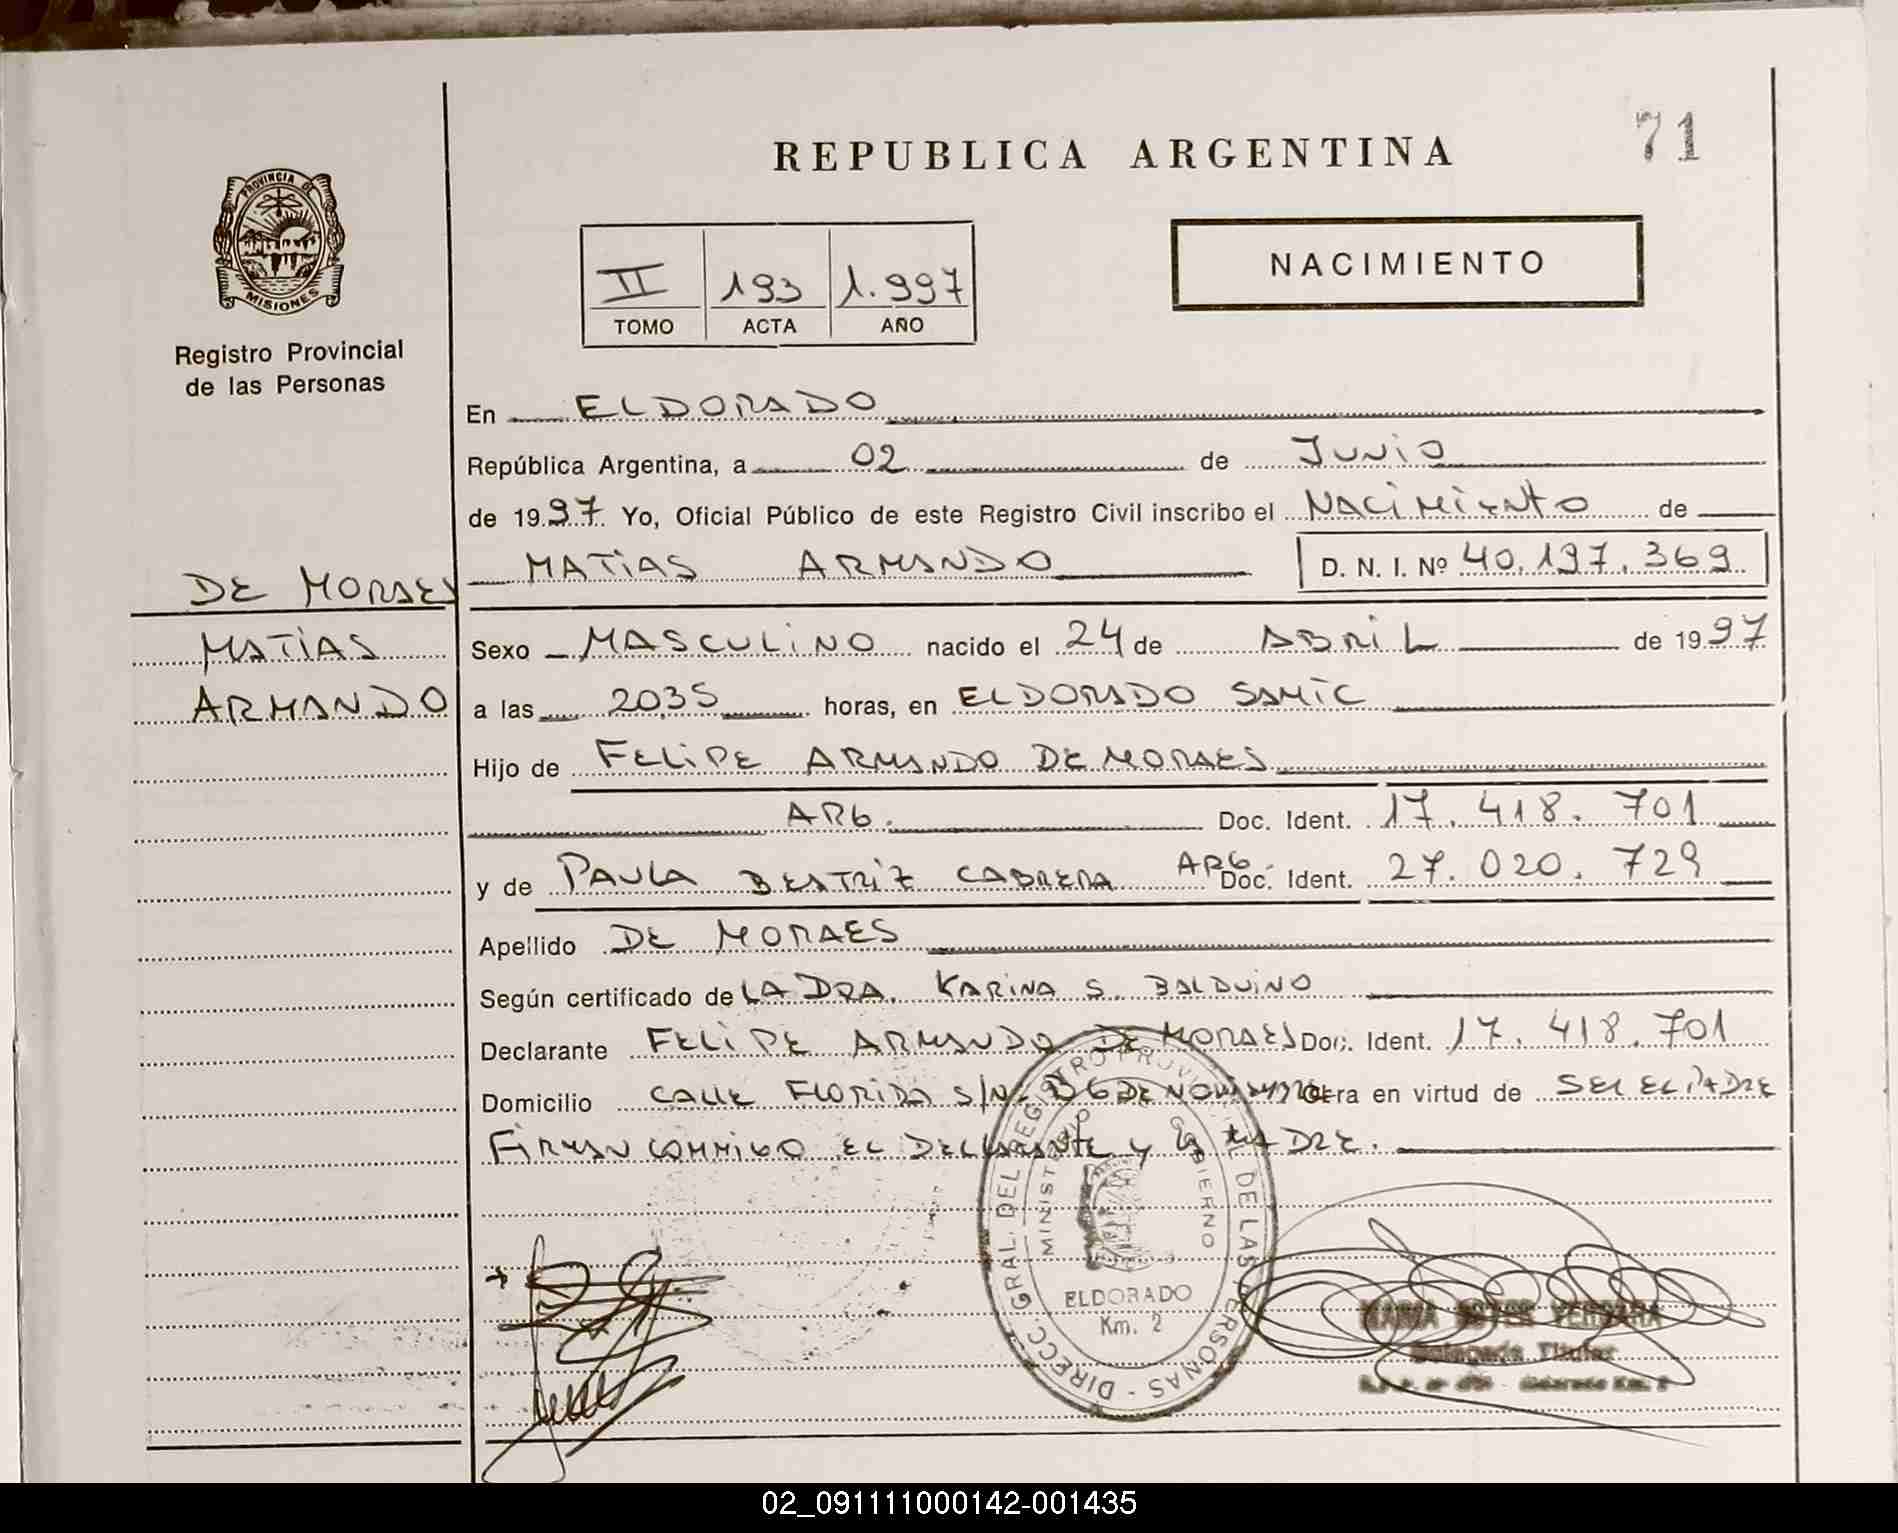 REPUBLICA ARGENTINA
71
PROVINCIA DE
MISIONES
Registro Provincial
de las Personas
II 193 1.997
TOMO ACTA AÑO
NACIMIENTO
En ELDORADO
República Argentina, a 02 de JUNIO
de 1997 Yo, Oficial Público de este Registro Civil inscribo el NACIMIENTO de
MATIAS ARMANDO D. N. I. Nº 40.197.369
DE MORAES
MATIAS
ARMANDO
Sexo MASCULINO nacido el 24 de ABRIL de 1997
a las 20,35 horas, en ELDORADO SAMIC
Hijo de FELIPE ARMANDO DE MORAES
ARG. Doc. Ident. 17.418.701
y de PAULA BEATRIZ CABRERA ARG. Doc. Ident. 27.020.729
Apellido DE MORAES
Según certificado de LA DRA. KARINA S. BALDUINO
Declarante FELIPE ARMANDO DE MORAES Doc. Ident. 17.418.701
Domicilio CALLE FLORIDA S/N Bº 6 DE NOVIEMBRE Obra en virtud de SER EL PADRE
FIRMAN CONMIGO EL DECLARANTE Y LA MADRE.
DIRECC. GRAL. DEL REGISTRO PROVINCIAL DE LAS PERSONAS
MINISTERIO GOBIERNO
ELDORADO
Km. 2
Delegada Titular
Eldorado Km. 2
02_091111000142-001435